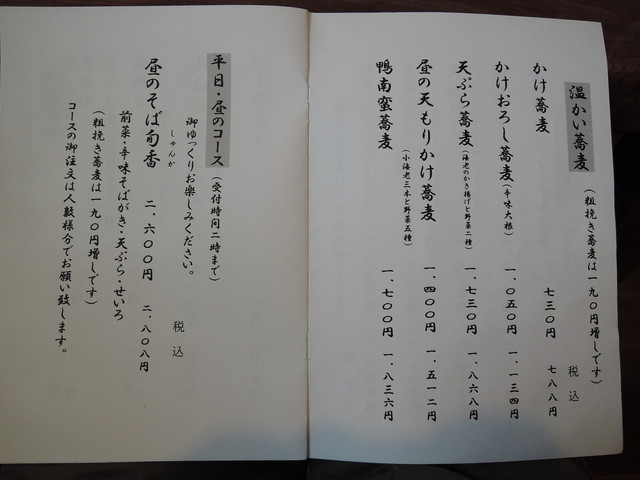 温かい蕎麦（粗挽き蕎麦は一九〇円増しです）
税込
かけ蕎麦 七三〇円 七八八円
かけおろし蕎麦（辛味大根） 一、〇五〇円 一、一三四円
天ぷら蕎麦（海老のかき揚げと野菜二種） 一、七三〇円 一、八六八円
昼の天もりかけ蕎麦（小海老三本と野菜五種） 一、四〇〇円 一、五一二円
鴨南蛮蕎麦 一、七〇〇円 一、八三六円
平日・昼のコース（受付時間二時まで）
御ゆっくりお楽しみください。
税込
昼のそば旬香 二、六〇〇円 二、八〇八円
しゅんか
前菜・辛味そばがき・天ぷら・せいろ
（粗挽き蕎麦は一九〇円増しです）
コースの御注文は人数様分でお願い致します。